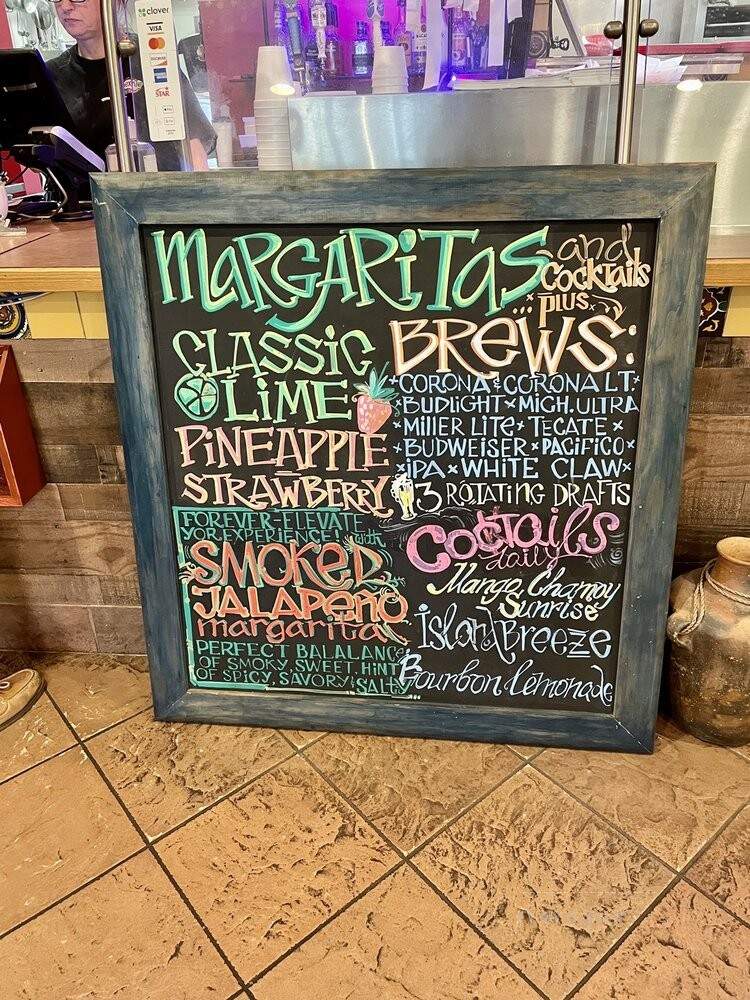 clover
VISA
MARGARITAS and
COCKTAILS
PLUS...
CLASSIC
LIME
PINEAPPLE
STRAWBERRY
FOREVER-ELEVATE
YOR EXPERIENCE! with
SMOKED
JALAPENO
margarita
PERFECT BALALANCE
OF SMOKY, SWEET, HINT
OF SPICY, SAVORY, SALTY
BREWS:
CORONA & CORONA LT.
BUDLIGHT × MICH. ULTRA
MILLER LITE × TECATE
BUDWEISER × PACIFICO ×
×IPA × WHITE CLAW×
3 ROTATING DRAFTS
COCTAILS
daily
Mango Chamoy
Sunrise
Island Breeze
Bourbon Lemonade